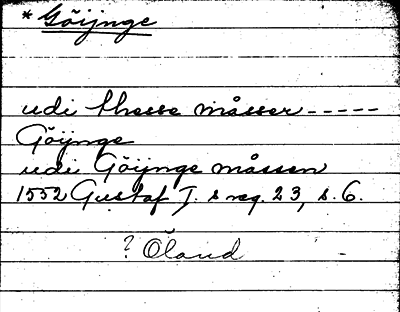 * Göijnge
udi thesse måsser - - - - -
Göijnge
udi Göijnge måssen
1552 Gustaf I. s reg. 23, s. 6.
? Öland